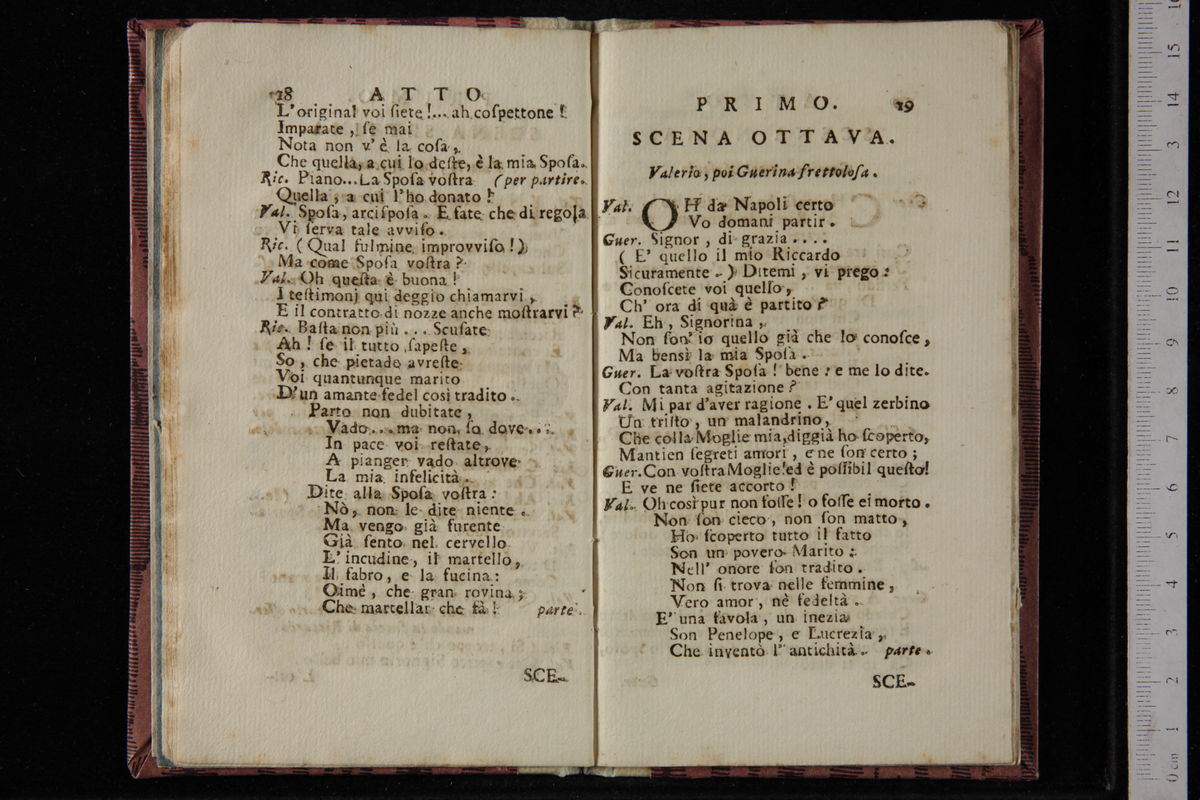 18 ATTO
L'original voi ſiete!... ah coſpettone!
Imparate, ſe mai
Nota non v'è la coſa,
Che quella, a cui lo deſte, è la mia Spoſa.
Ric. Piano... La Spoſa voſtra (per partire.
Quella, a cui l'ho donato!
Val. Spoſa, arciſpoſa. E fate che di regola
Vi ſerva tale avviſo.
Ric. (Qual fulmine improvviſo!)
Ma come Spoſa voſtra?
Val. Oh queſta è buona!
I teſtimonj qui deggio chiamarvi,
E il contratto di nozze anche moſtrarvi?
Ric. Baſta non più... Scuſate
Ah! ſe il tutto ſapeſte,
So, che pietade avreſte
Voi quantunque marito
D'un amante fedel così tradito.
Parto non dubitate,
Vado... ma non ſo dove...
In pace voi reſtate,
A pianger vado altrove
La mia infelicità.
Dite alla Spoſa voſtra:
Nò, non le dite niente.
Ma vengo già furente
Già ſento nel cervello
E' incudine, il martello,
Il fabro, e la fucina:
Oimè, che gran rovina;
Che martellar che fà! parte.
SCE-
PRIMO. 19
SCENA OTTAVA.
Valerio, poi Guerina frettoloſa.
Val. OH da Napoli certo
Vo domani partir.
Guer. Signor, di grazia....
(E' quello il mio Riccardo
Sicuramente.) Ditemi, vi prego:
Conoſcete voi quelſo,
Ch' ora di quà è partito?
Val. Eh, Signorina,
Non ſon' io quello già che lo conoſce,
Ma bensì la mia Spoſa.
Guer. La voſtra Spoſa! bene: e me lo dite.
Con tanta agitazione?
Val. Mi par d'aver ragione. E' quel zerbino
Un triſto, un malandrino,
Che colla Moglie mia, diggià ho ſcoperto,
Mantien ſegreti amori, e ne ſon certo;
Guer. Con voſtra Moglie! ed è poſſibil queſto!
E ve ne ſiete accorto!
Val. Oh così pur non foſſe! o foſſe ei morto.
Non ſon cieco, non ſon matto,
Ho ſcoperto tutto il fatto
Son un povero Marito:
Nell' onore ſon tradito.
Non ſi trova nelle femmine,
Vero amor, nè fedeltà.
E' una favola, un inezia
Son Penelope, e Lucrezia,
Che inventò l' antichità. parte.
SCE-